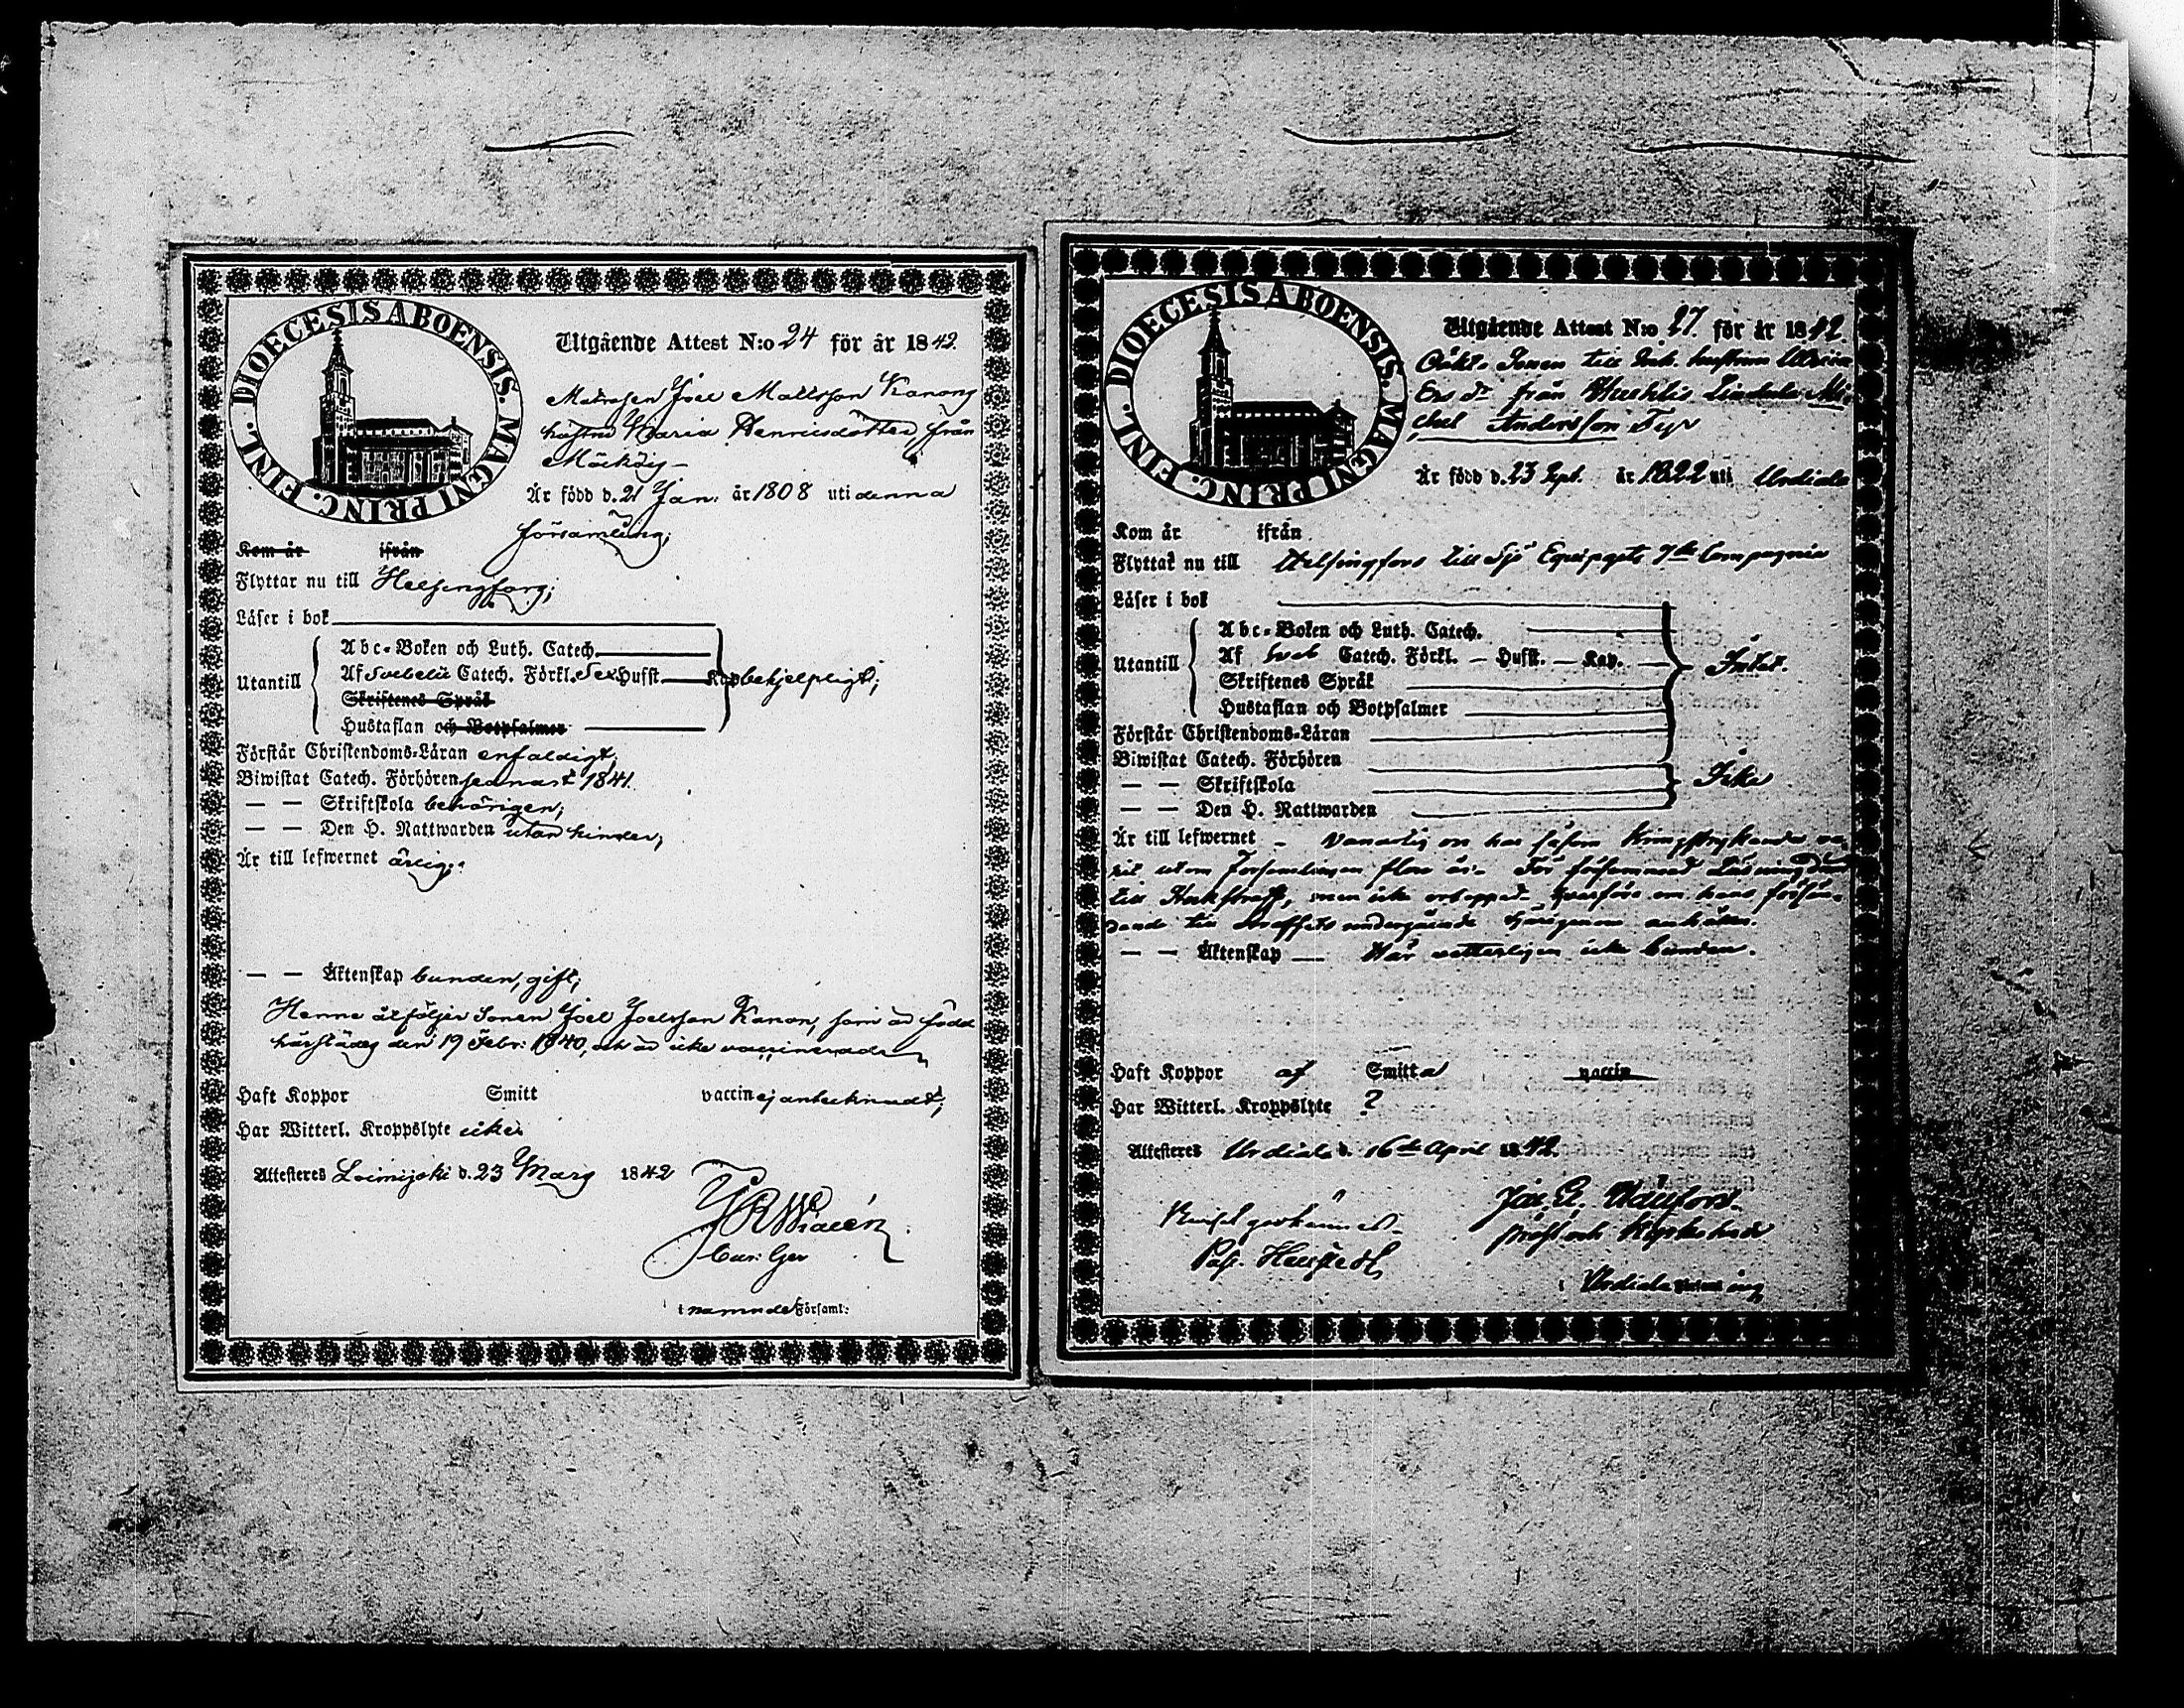 DIOECESIS ABOENSIS. MAGNI PRINC. FINL.
Utgående Attest N:o 24 för år 1842
Matrosen Joel Mattsson Kanons
hustru Maria Henricsdotter från
Är född d. 21 Jan: år 1808 uti denna
församling;
Kom år ifrån
Flyttar nu till Helsingfors;
Läser i bok
Utantill
Abc-Boken och Luth. Catech.
Af Svebelii Catech. Förkl. Sex Hufst. Kap behjelpligt;
Skriftenes Språk
Hustaflan och Botpsalmer
Förstår Christendoms-Läran enfaldigt;
Biwistat Catech. Förhören senast 1841.
— — Skriftskola behörigen;
— — Den H. Nattwarden utan hinder;
Är till lefwernet ärlig;
— — Äktenskap bunden, gift;
Henne åtföljer Sonen Joel Joelsson Kanon, som är född
härstädes den 19 Febr: 1840, och är icke vaccinerad
Haft Koppor Smitt vaccin ej antecknadt;
Har Witterl. Kroppslyte icke
Attesteras Loimijoki d. 23 Mars 1842
i namnde Församl:
DIOECESIS ABOENSIS. MAGNI PRINC. FINL.
Utgående Attest N:o 27 för år 1842.
Oäkta Sonen till Inh. hustrun
från Lindula Mi-
chel Andersson
Är född d. 23 Sept. år 1822 uti Urdiala
Kom år ifrån
Flyttar nu till Helsingfors till Sjö Equipagets 7de Compagnie
Läser i bok
Utantill
Abc-Boken och Luth. Catech.
Af Sveb Catech. Förkl. — Hufst. — Kap. — Intet.
Skriftenes Språk
Hustaflan och Botpsalmer
Förstår Christendoms-Läran
Biwistat Catech. Förhören
— — Skriftskola Icke
— — Den H. Nattwarden
Är till lefwernet – Vanartig och har såsom kringstrykande va-
rit utom Församlingen flere år. För försummad Läsning dömd
till Stockstraff, men icke
till straffets undergående härigenom
— — Äktenskap — Här vetterligen icke bunden.
Haft Koppor af Smitta vaccin
Har Witterl. Kroppslyte ?
Attesteras Urdiala d. 16de April 1842.
i Urdiala